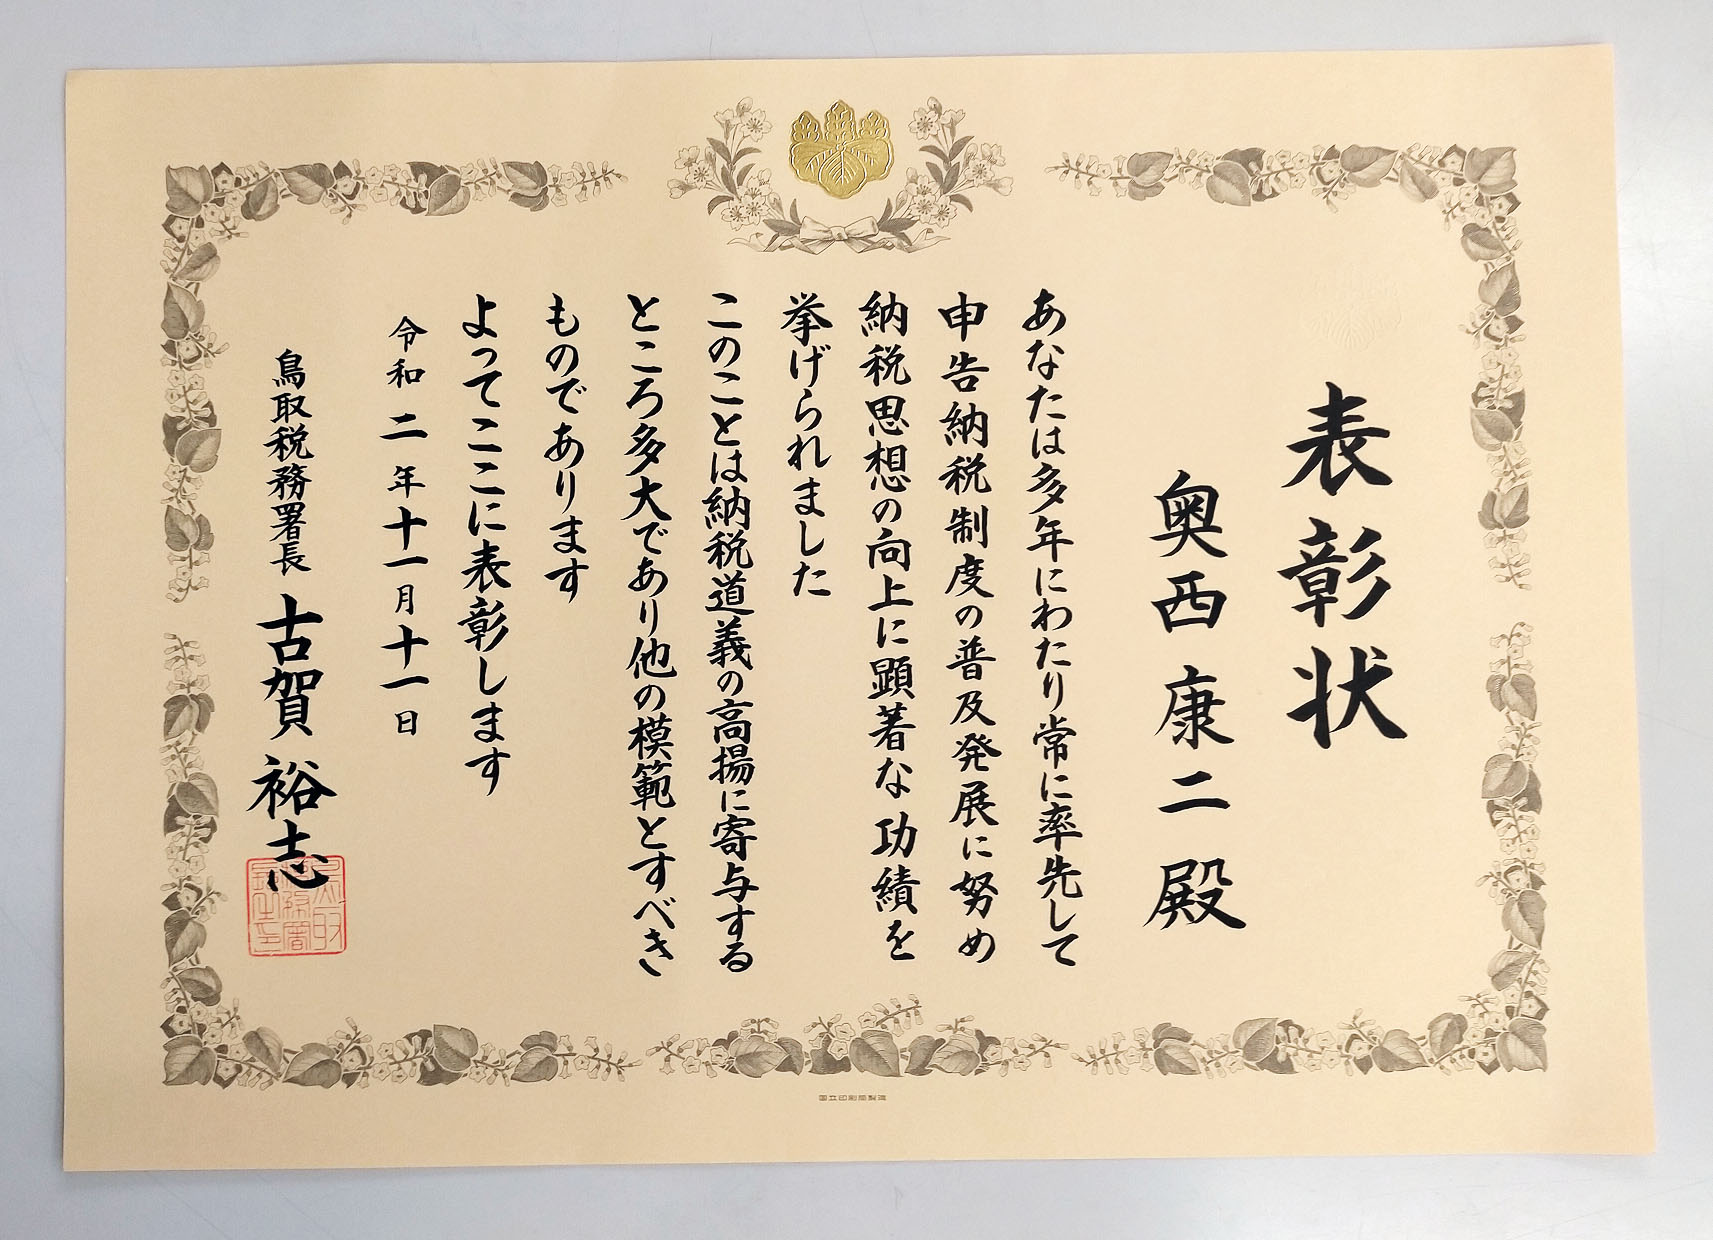 表彰状
奥西康二殿
あなたは多年にわたり常に率先して
申告納税制度の普及発展に努め
納税思想の向上に顕著な功績を
挙げられました
このことは納税道義の高揚に寄与する
ところ多大であり他の模範とすべき
ものであります
よってここに表彰します
令和二年十一月十一日
鳥取税務署長 古賀裕志
国立印刷局製造